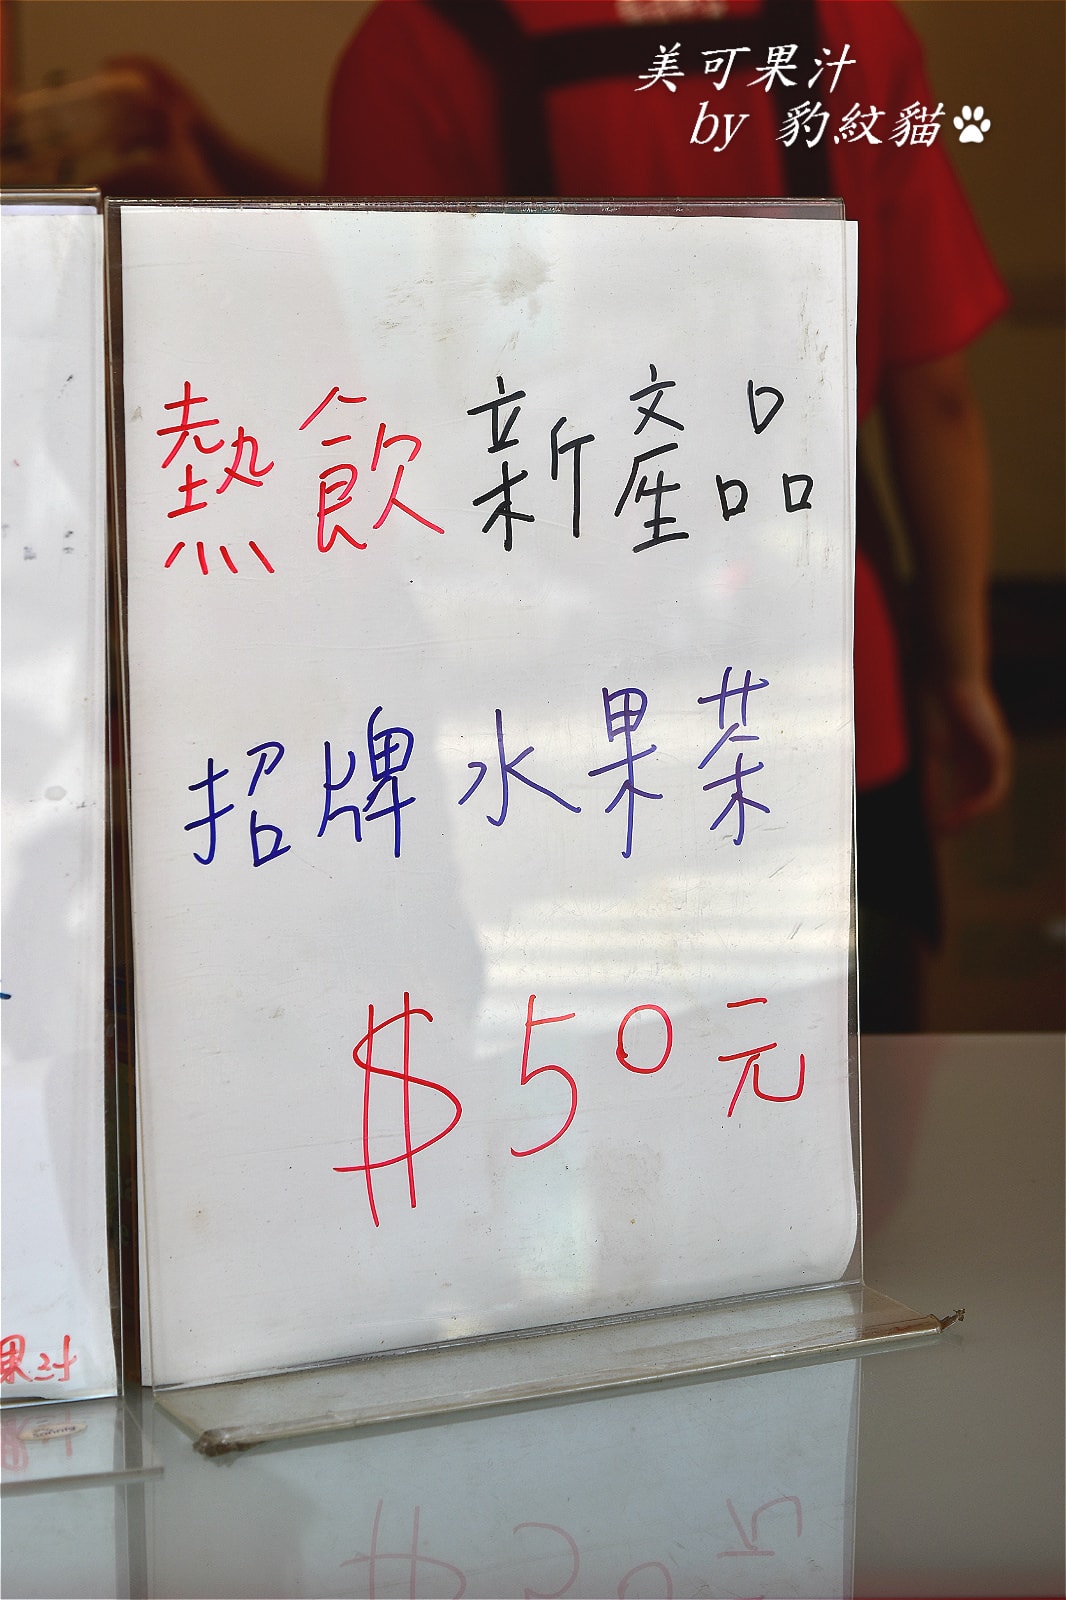 美可果汁
by 豹紋貓
熱飲新產品
招牌水果茶
$50元
果汁